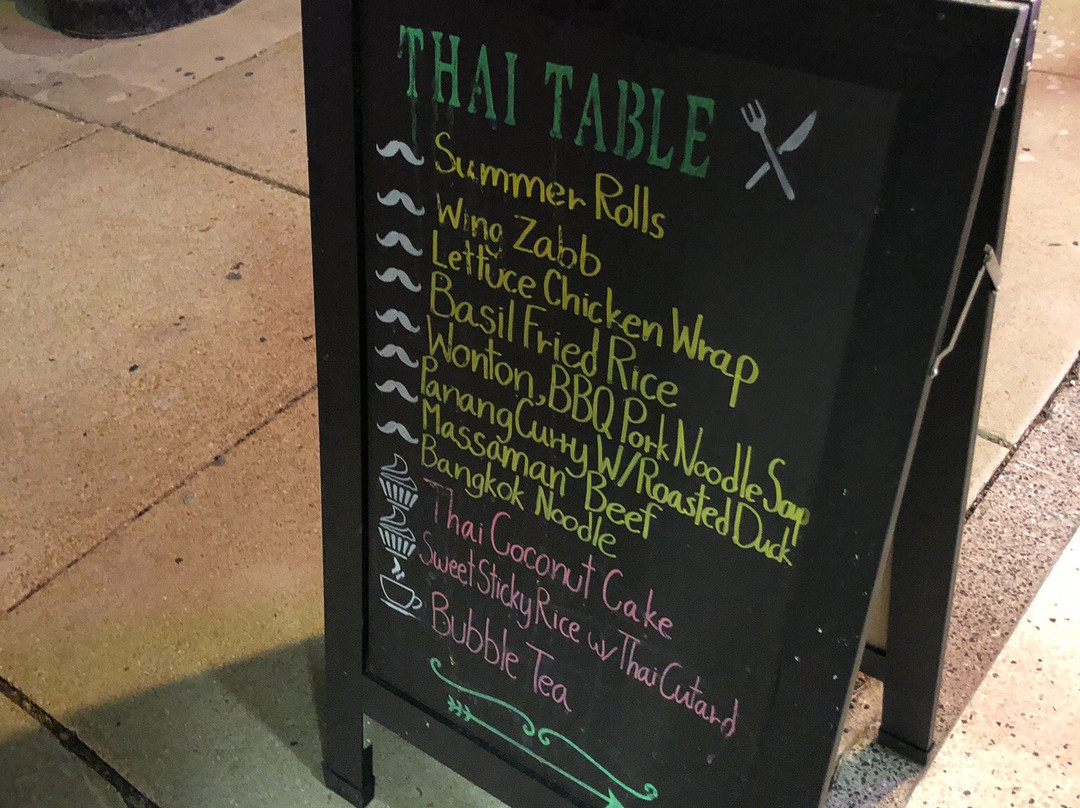 THAI TABLE
Summer Rolls
Wing Zabb
Lettuce Chicken Wrap
Basil Fried Rice
Wonton, BBQ Pork Noodle Soup
Panang Curry W/Roasted Duck
Massaman Beef
Bangkok Noodle
Thai Coconut Cake
Sweet Sticky Rice w/ Thai Cutard
Bubble Tea